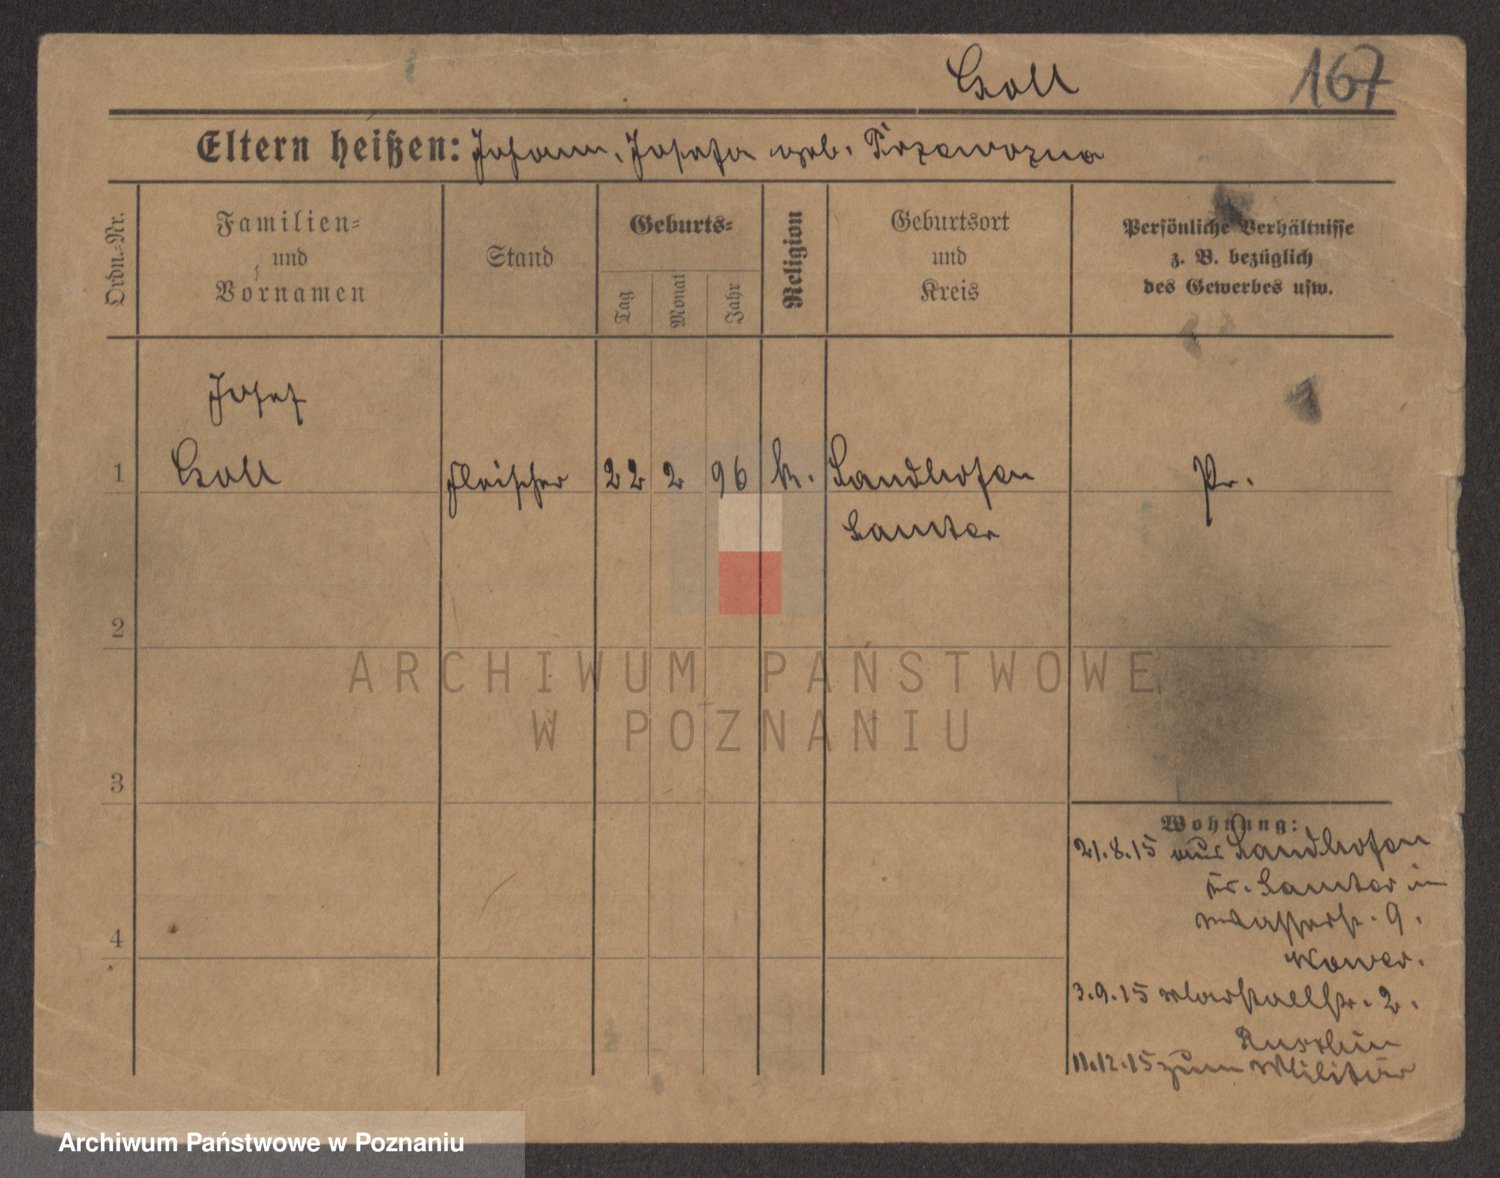 Goll 167
Eltern heißen: Johann, Josefa geb. Trzewozna
Ordn.-Nr.
Familien-
und
Vornamen
Stand
Geburts-
Tag
Monat
Jahr
Religion
Geburtsort
und
Kreis
Persönliche Verhältnisse
z. B. bezüglich
des Gewerbes usw.
Josef
1 Goll Fleischer 22 2 96 k. Sandhofen Pr.
Samter
2
3
4
Wohnung:
21.8.15 aus Sandhofen
Kr. Samter in
Wasserstr. 9.
3.9.15 Marstallstr. 2.
11.12.15 zum Militär
ARCHIWUM PAŃSTWOWE
W POZNANIU
Archiwum Państwowe w Poznaniu